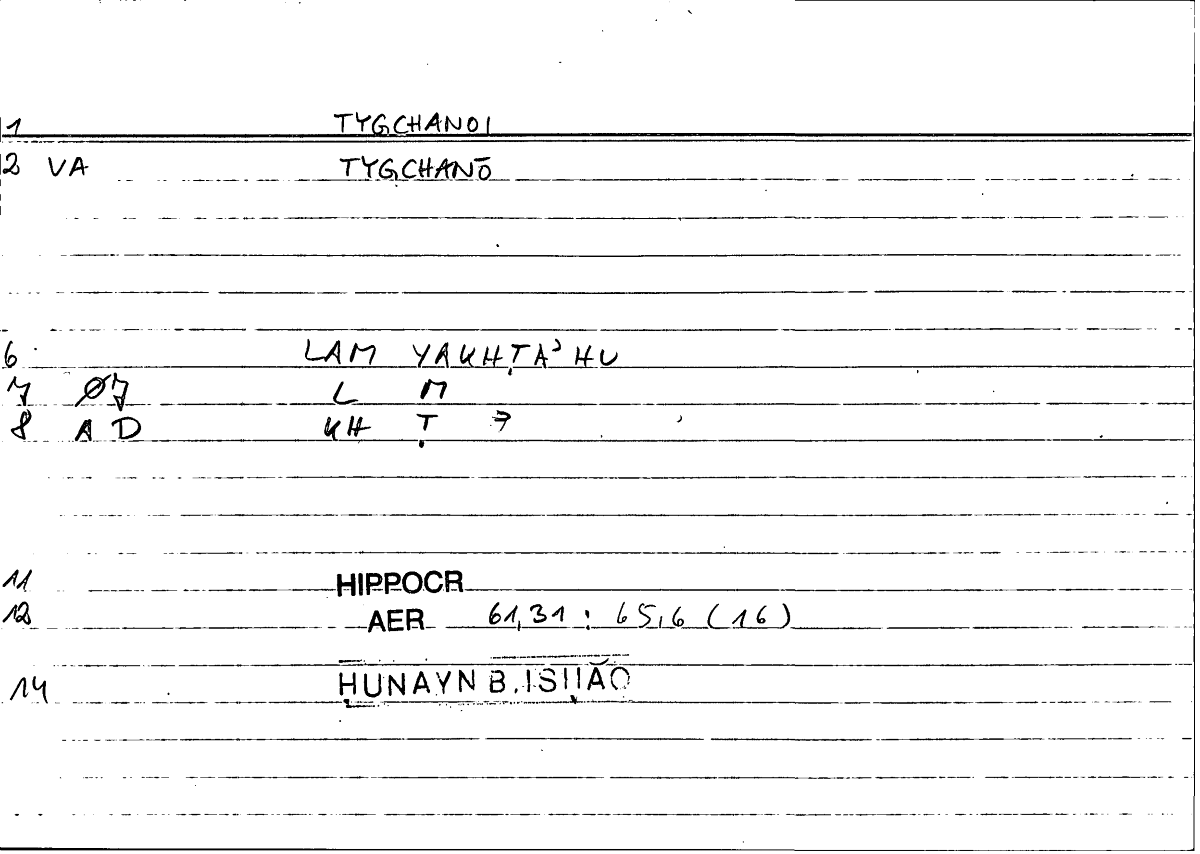 1 TYGCHANOI
2 VA TYGCHANŌ
6 LAM YAKHṬAʾHU
7 ØJ L M
8 A D KH Ṭ ʾ
11 HIPPOCR
12 AER 61,31 : 65,6 (16)
14 ḤUNAYN B. ISḤĀQ